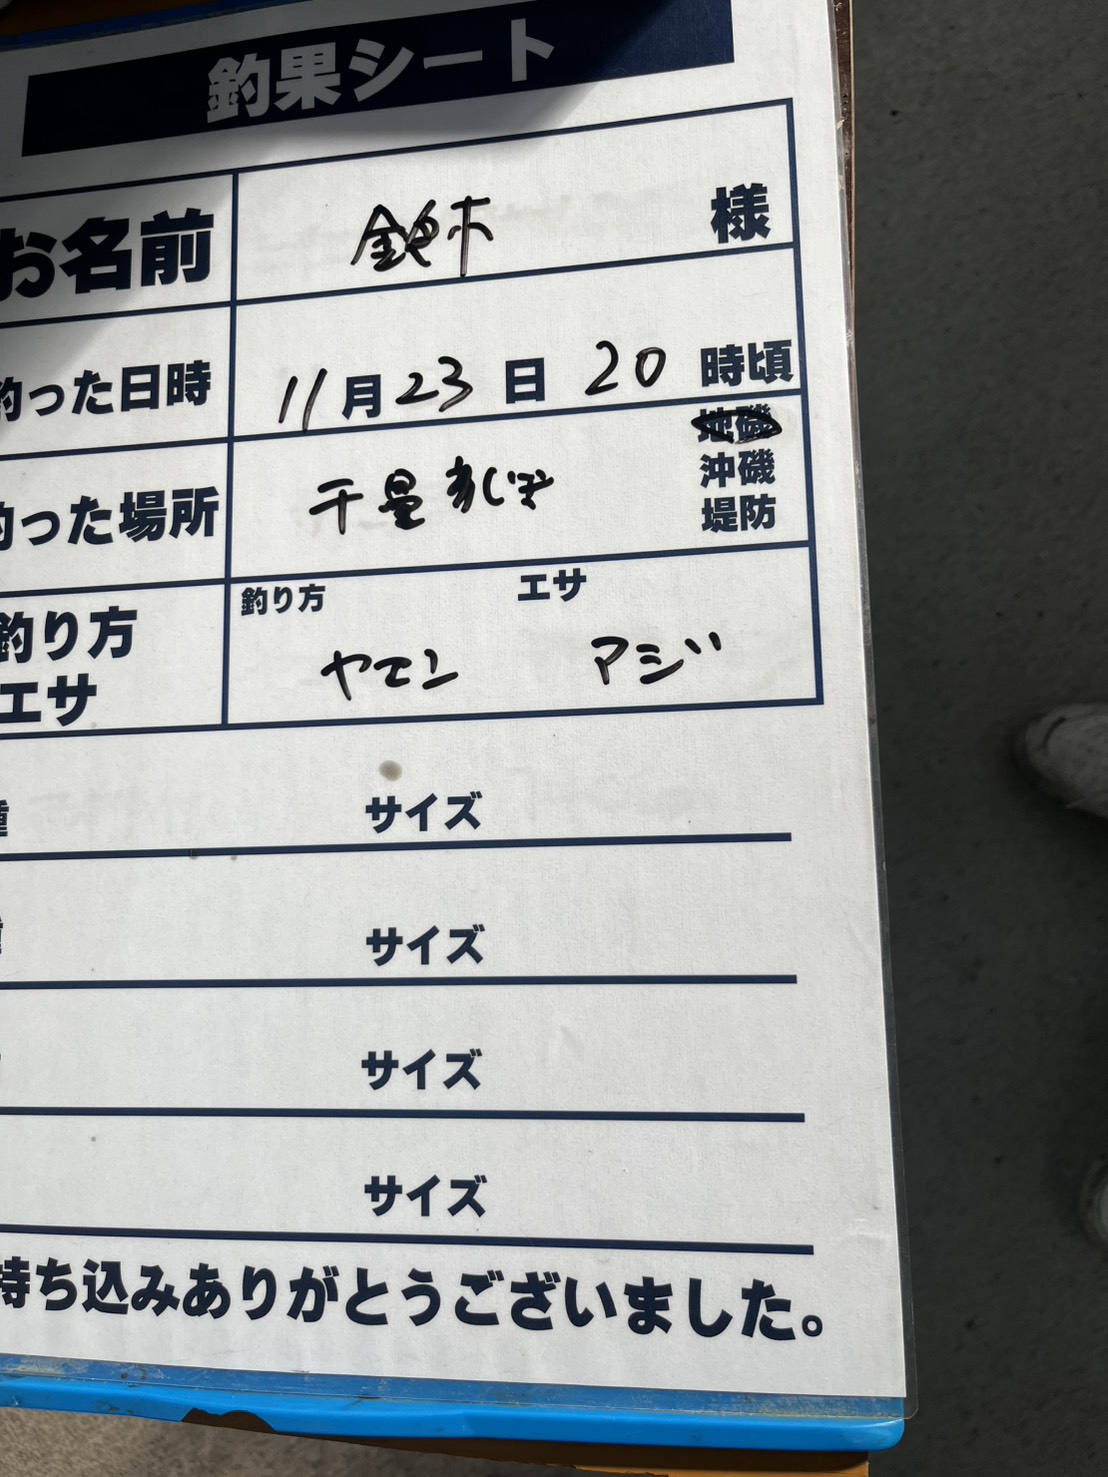 釣果シート
お名前 鈴木 様
釣った日時 11月23日 20時頃
地磯
沖磯
釣った場所 千畳
堤防
釣り方 エサ
釣り方
エサ
ヤエン アジ
種 サイズ
サイズ
サイズ
サイズ
持ち込みありがとうございました。